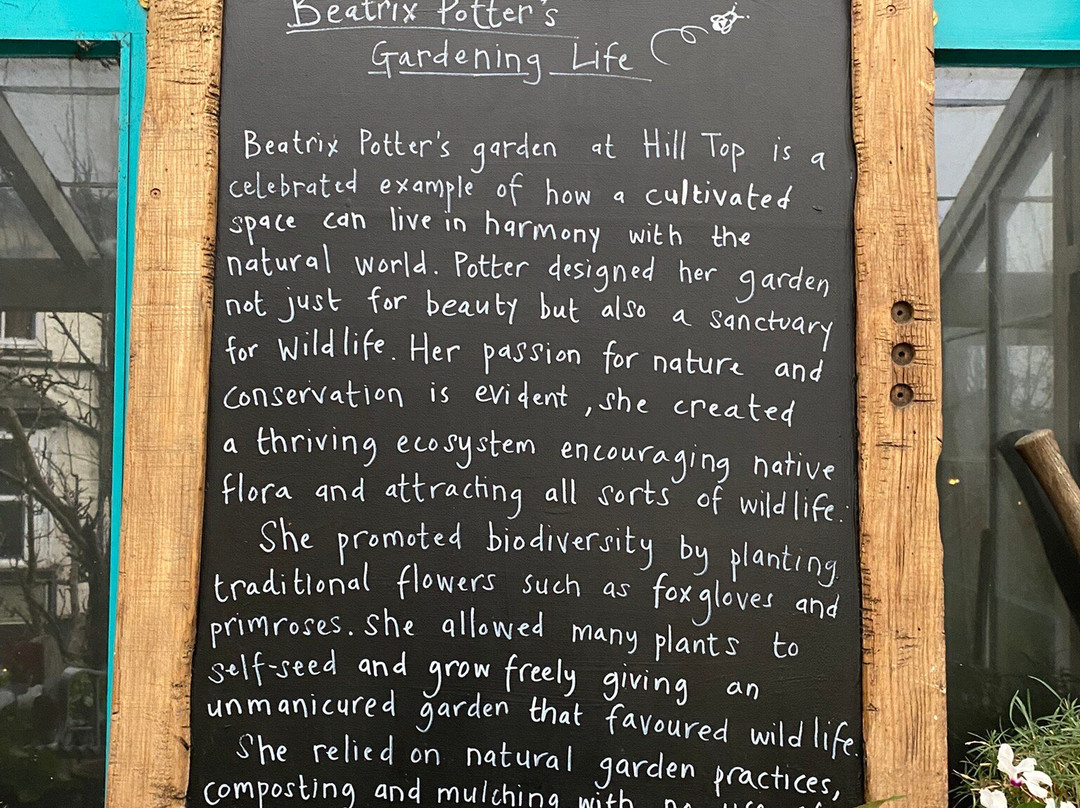 Beatrix Potter's
Gardening Life
Beatrix Potter's garden at Hill Top is a
celebrated example of how a cultivated
space can live in harmony with the
natural world. Potter designed her garden
not just for beauty but also a sanctuary
for wildlife. Her passion for nature and
conservation is evident, she created
a thriving ecosystem encouraging native
flora and attracting all sorts of wildlife.
She promoted biodiversity by planting
traditional flowers such as foxgloves and
primroses. She allowed many plants to
self-seed and grow freely giving an
unmanicured garden that favoured wildlife.
She relied on natural garden practices,
composting and mulching with no